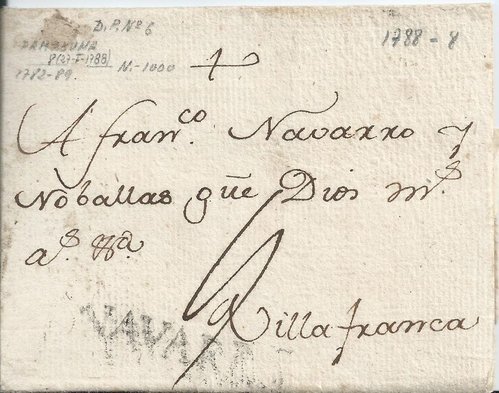 D.P. Nº 6
PAMPLONA
8(27-I-1788)
1782-89. N.-1000
1788-8
A franco. Navarro y
Noballas que Dios ms.
as.
Villafranca
NAVARRA